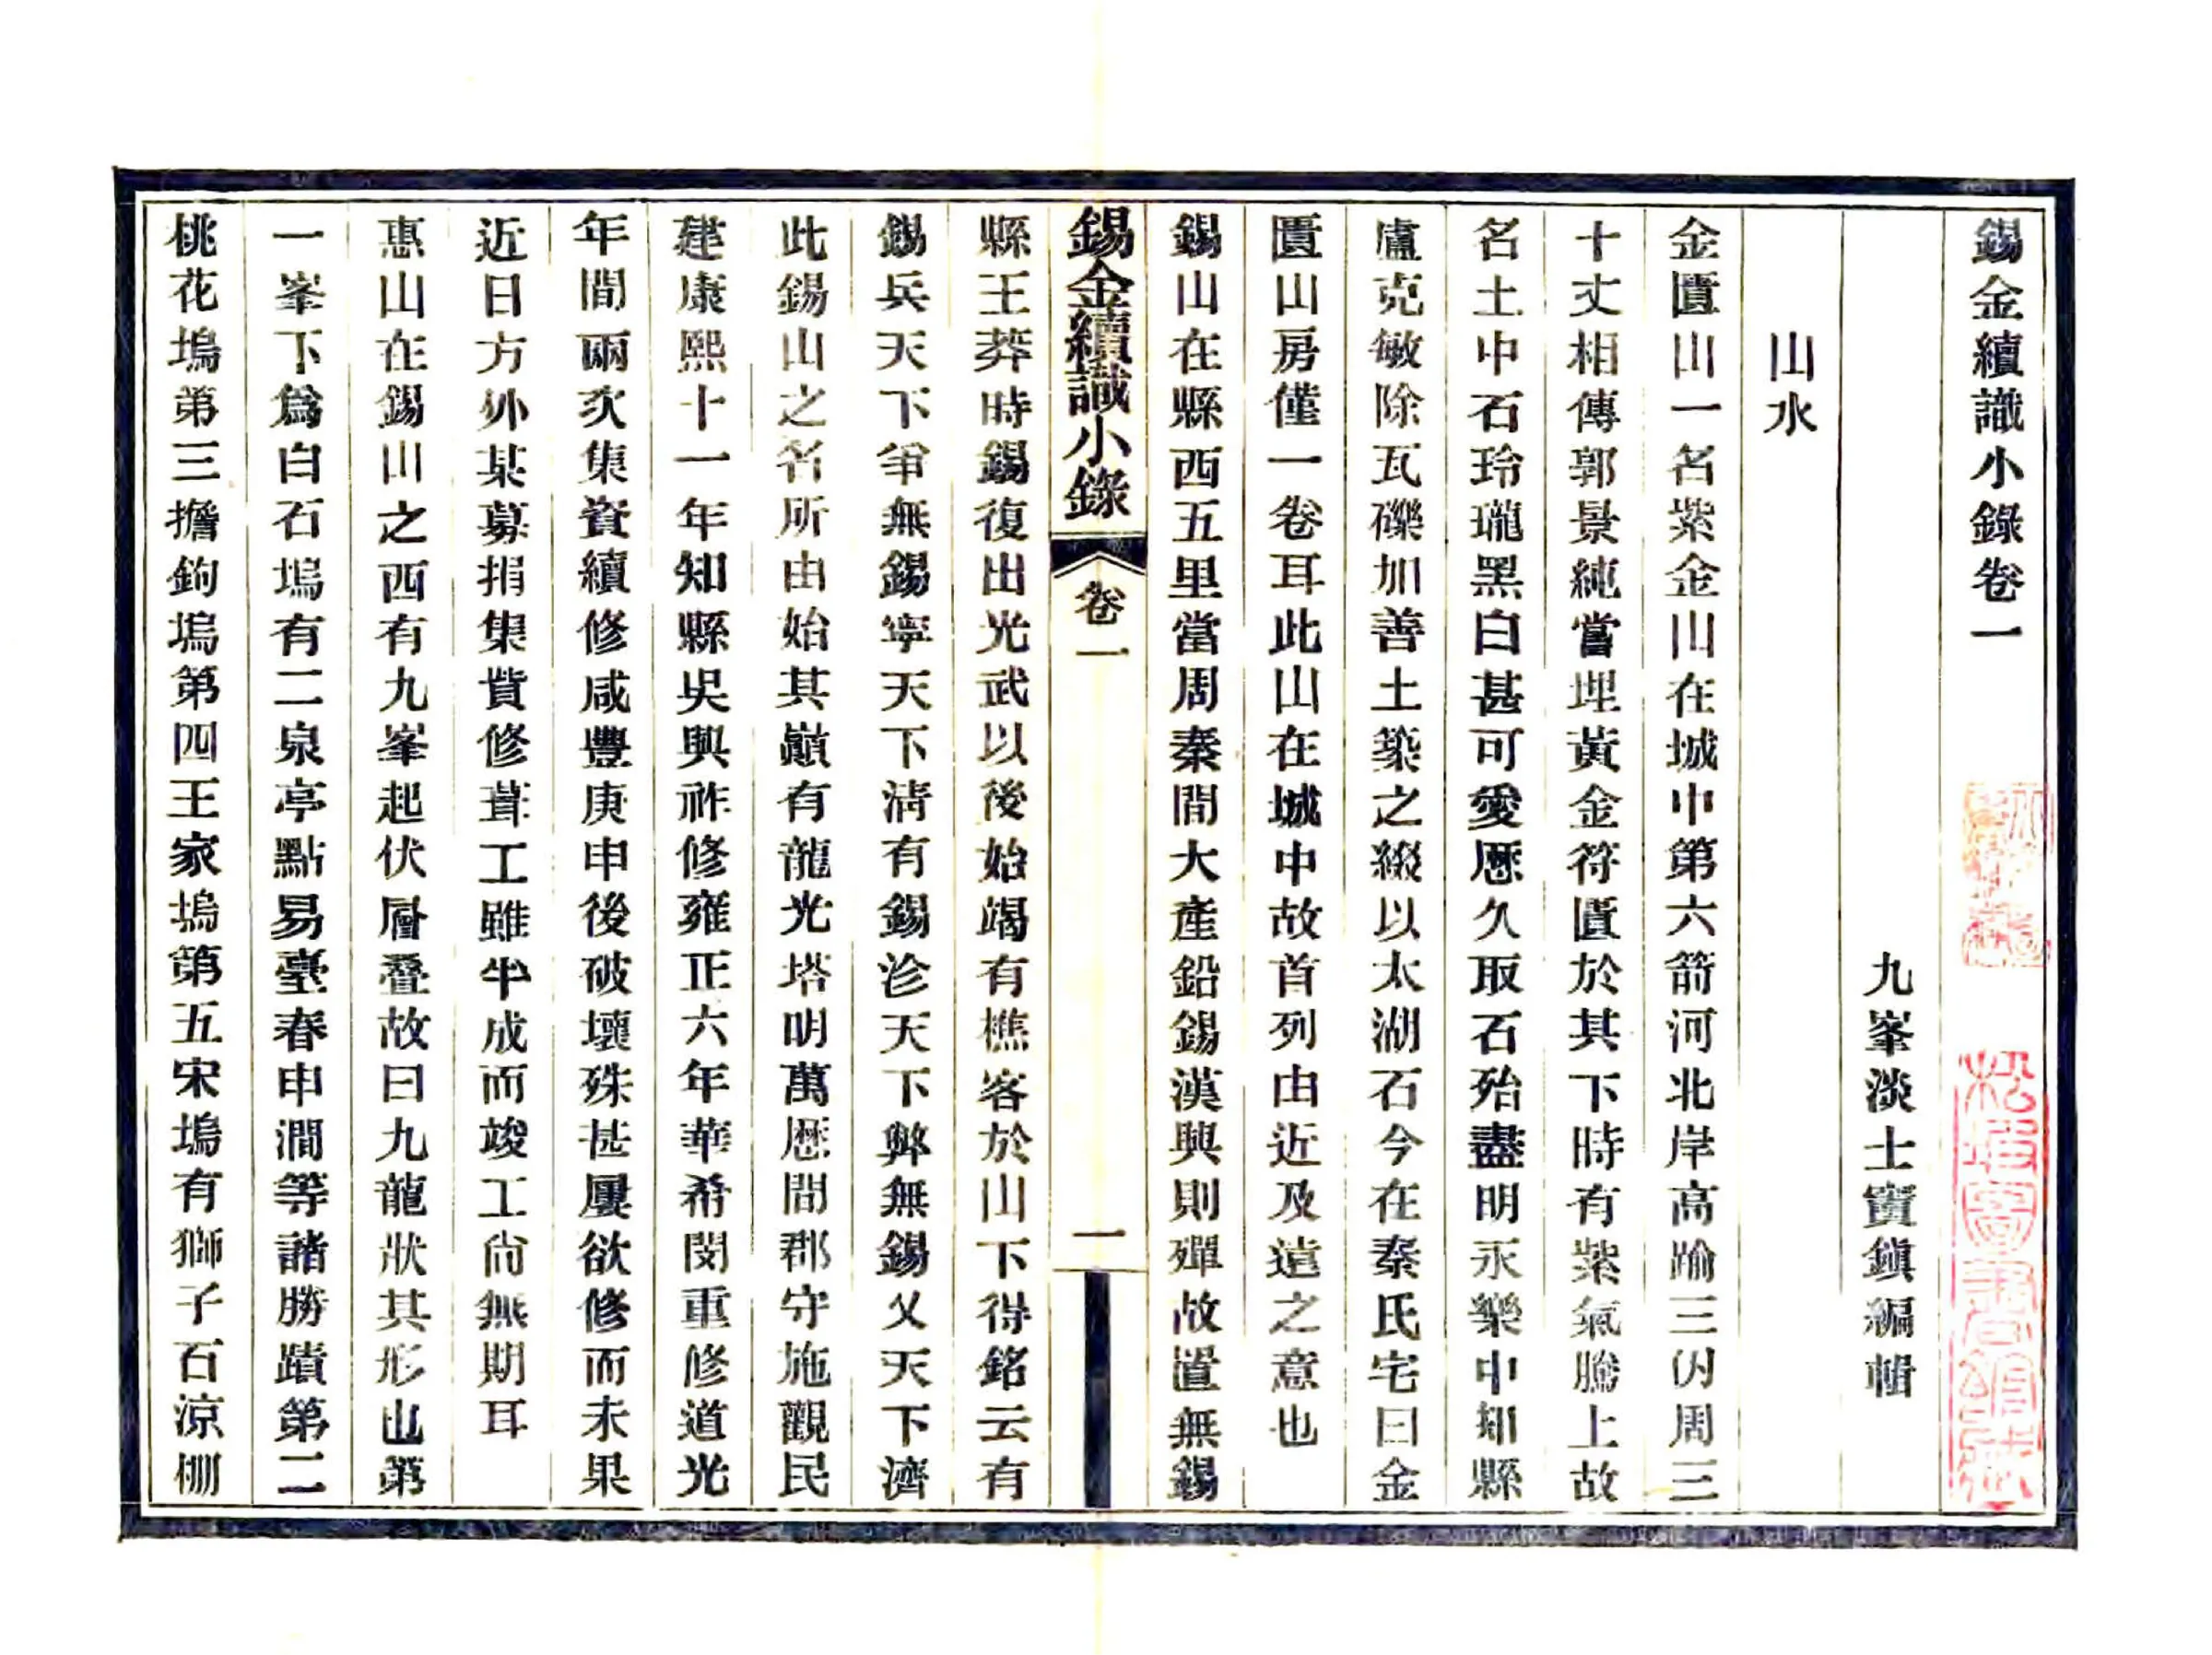 錫金續識小錄卷一
九峯淡士竇鎮編輯
山水
金匱山一名紫金山在城中第六箭河北岸高踰三仞周三
十丈相傳郭景純嘗埋黃金符匱於其下時有紫氣騰上故
名土中石玲瓏黑白甚可愛歷久取石殆盡明永樂中知縣
盧克敏除瓦礫加善土築之綴以太湖石今在秦氏宅曰金
匱山房僅一卷耳此山在城中故首列由近及遠之意也
錫山在縣西五里當周秦間大產鉛錫漢興則殫故置無錫
錫金續識小錄
卷一
一
縣王莽時錫復出光武以後始竭有樵客於山下得銘云有
錫兵天下爭無錫寧天下淸有錫沴天下弊無錫乂天下濟
此錫山之名所由始其巔有龍光塔明萬歷間郡守施觀民
建康熙十一年知縣吳興祚修雍正六年華希閔重修道光
年間兩次集資續修咸豐庚申後破壞殊甚屢欲修而未果
近日方外某募捐集貲修葺工雖半成而竣工尚無期耳
惠山在錫山之西有九峯起伏層疊故曰九龍狀其形也第
一峯下爲白石塢有二泉亭點易臺春申澗等諸勝蹟第二
桃花塢第三擔鉤塢第四王家塢第五宋塢有獅子石涼棚